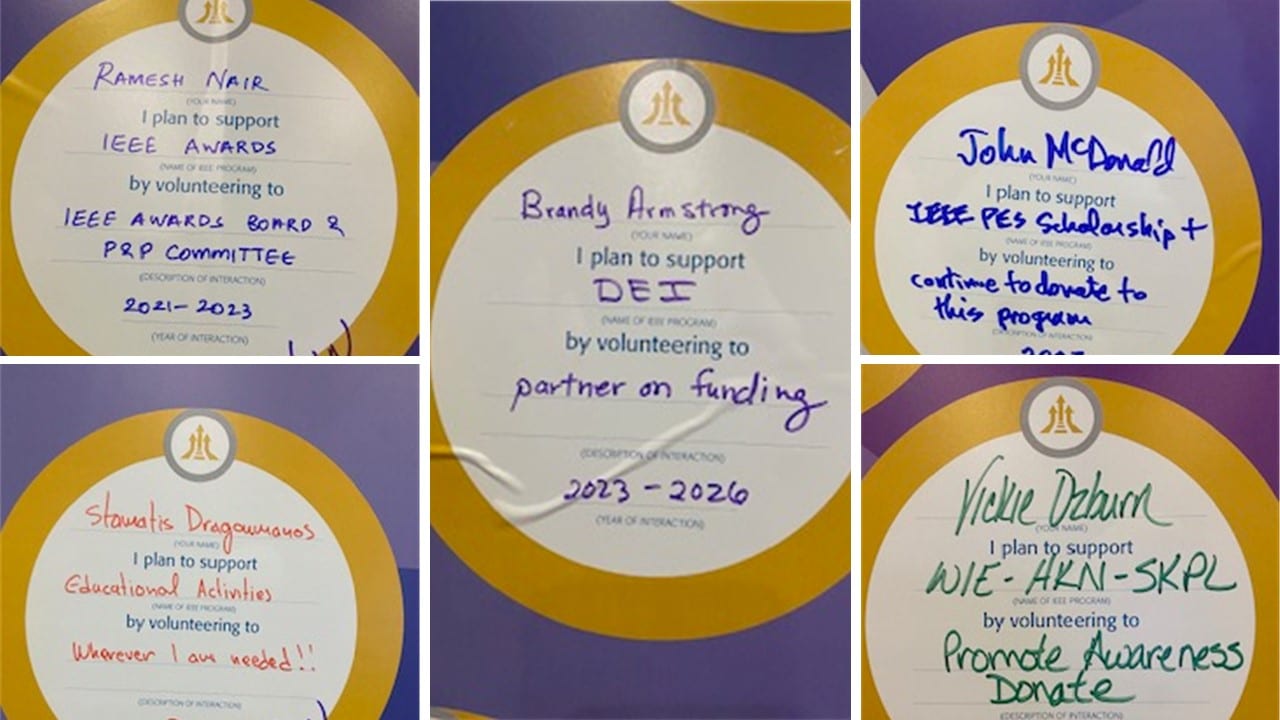 RAMESH NAIR
(YOUR NAME)
I plan to support
IEEE AWARDS
(NAME OF IEEE PROGRAM)
by volunteering to
IEEE AWARDS BOARD &
P&P COMMITTEE
(DESCRIPTION OF INTERACTION)
2021-2023
(YEAR OF INTERACTION)
Stamatis Dragoumanos
(YOUR NAME)
I plan to support
Educational Activities
(NAME OF IEEE PROGRAM)
by volunteering to
Wherever I am needed!!
(DESCRIPTION OF INTERACTION)
Brandy Armstrong
(YOUR NAME)
I plan to support
DEI
(NAME OF IEEE PROGRAM)
by volunteering to
partner on funding
(DESCRIPTION OF INTERACTION)
2023-2026
(YEAR OF INTERACTION)
John McDonald
(YOUR NAME)
I plan to support
IEEE PES Scholarship +
(NAME OF IEEE PROGRAM)
by volunteering to
continue to donate to
this program
(DESCRIPTION OF INTERACTION)
Vickie Ozburn
(YOUR NAME)
I plan to support
WIE-HKN-SKPL
(NAME OF IEEE PROGRAM)
by volunteering to
Promote Awareness
Donate
(DESCRIPTION OF INTERACTION)